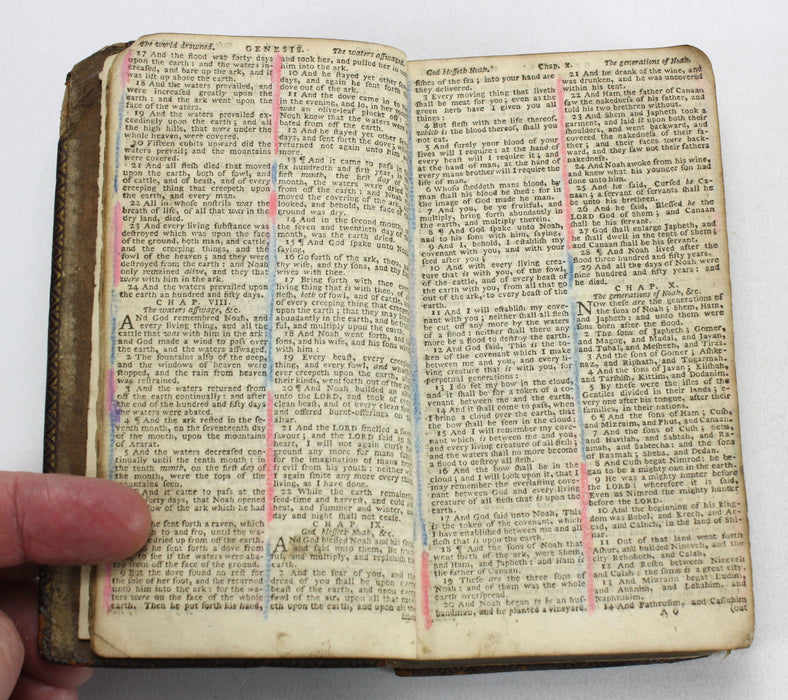 The world drowned. GENESIS. The waters asswaged.
17 And the flood was forty days
upon the earth: and the waters in-
creased, and bare up the ark, and it
was lift up above the earth.
18 And the waters prevailed, and
were increased greatly upon the
earth: and the ark went upon the
face of the waters.
19 And the waters prevailed ex-
ceedingly upon the earth; and all
the high hills, that were under the
whole heaven, were covered.
20 Fifteen cubits upward did the
waters prevail; and the mountains
were covered.
21 And all flesh died that moved
upon the earth, both of fowl, and
of cattle, and of beast, and of every
creeping thing that creepeth upon
the earth, and every man.
22 All in whose nostrils was the
breath of life, of all that was in the
dry land, died.
23 And every living substance was
destroyed which was upon the face
of the ground, both man, and cattle,
and the creeping things, and the
fowl of the heaven; and they were
destroyed from the earth: and Noah
only remained alive, and they that
were with him in the ark.
24 And the waters prevailed upon
the earth an hundred and fifty days.
CHAP. VIII.
The waters asswage, &c.
AND God remembered Noah, and
every living thing, and all the
cattle that was with him in the ark:
and God made a wind to pass over
the earth, and the waters asswaged.
2 The fountains also of the deep,
and the windows of heaven were
stopped, and the rain from heaven
was restrained.
3 And the waters returned from
off the earth continually: and after
the end of the hundred and fifty days
the waters were abated.
4 ¶ And the ark rested in the se-
venth month, on the seventeenth day
of the month, upon the mountains
of Ararat.
5 And the waters decreased con-
tinually until the tenth month: in
the tenth month, on the first day of
the month, were the tops of the
mountains seen.
And it came to pass at the
forty days, that Noah opened
of the ark which he had
he sent forth a raven, which
to and fro, until the wa-
dried up from off the earth.
he sent forth a dove from
to see if the waters were aba-
ted from off the face of the ground.
9 But the dove found no rest for
the sole of her foot, and she returned
unto him into the ark: for the wa-
ters were on the face of the whole
earth. Then he put forth his hand,
and took her, and pulled her in
him into the ark.
10 And he stayed yet other
days, and again he sent forth
dove out of the ark.
11 And the dove came in to
in the evening, and lo, in her mouth
was an olive-leaf pluckt off:
Noah knew that the waters were
bated from off the earth.
12 And he stayed yet other
days, and sent forth the dove;
returned not again unto him
more.
13 ¶ And it came to pass in
six hundredth and first year, in
first month, the first day of
month, the waters were dried
from off the earth: and Noah
moved the covering of the ark,
looked, and behold, the face of
ground was dry.
14 And in the second month,
the seven and twentieth day of
month, was the earth dried.
15 ¶ And God spake unto Noah
saying,
16 Go forth of the ark, thou,
thy wife, and thy sons, and thy
wives with thee.
17 Bring forth with thee
living thing that is with thee, of
flesh, both of fowl, and of cattle,
of every creeping thing that creepeth
upon the earth; that they may
abundantly in the earth, and be
ful, and multiply upon the earth.
18 And Noah went forth, and
sons, and his wife, and his sons
with him:
19 Every beast, every creeping
thing, and every fowl, and what-
ever creepeth upon the earth,
their kinds, went forth out of the
20 ¶ And Noah builded an
unto the LORD, and took of
clean beast, and of every clean
and offered burnt-offerings on
altar.
21 And the LORD smelled a
savour; and the LORD said in
heart, I will not again curse
ground any more for mans sake;
the imagination of mans heart
is evil from his youth: neither
I again smite any more every thing
living, as I have done.
22 While the earth remaineth,
seed-time and harvest, and cold
heat, and summer and winter,
day and night shall not cease.
CHAP. IX.
God blesseth Noah, &c.
AND God blessed Noah and his sons,
and said unto them, Be fruitful,
and multiply, and replenish the
earth.
2 And the fear of you, and the
dread of you shall be upon every
beast of the earth, and upon every
fowl of the air, upon all that mov-
eth upon the earth, and upon all the
God blesseth Noah. Chap. x. The generations of Noah.
fishes of the sea; into your hand are
they delivered.
3 Every moving thing that liveth
shall be meat for you; even as the
green herb have I given you all
things:
4 But flesh with the life thereof,
which is the blood thereof, shall you
not eat.
5 And surely your blood of your
lives will I require: at the hand of
every beast will I require it; and
at the hand of man, at the hand of
every mans brother will I require the
life of man.
6 Whoso sheddeth mans blood, by
man shall his blood be shed: for in
the image of God made he man.
7 And you, be ye fruitful, and
multiply, bring forth abundantly in
the earth, and multiply therein.
8 ¶ And God spake unto Noah,
and to his sons with him, saying,
9 And I, behold, I establish my
covenant with you, and with your
seed after you;
10 And with every living crea-
ture that is with you, of the fowl,
of the cattle, and of every beast of
the earth with you, from all that go
out of the ark, to every beast of the
earth.
11 And I will establish my cove-
nant with you; neither shall all flesh
be cut off any more by the waters
of a flood: neither shall there any
more be a flood to destroy the earth.
12 And God said, This is the to-
ken of the covenant which I make
between me and you, and every li-
ving creature that is with you, for
perpetual generations:
13 I do set my bow in the cloud,
and it shall be for a token of a co-
venant between me and the earth.
14 And it shall come to pass, when
I bring a cloud over the earth, that
the bow shall be seen in the cloud:
15 And I will remember my cove-
nant which is between me and you,
and every living creature of all flesh;
and the waters shall no more become
a flood to destroy all flesh.
16 And the bow shall be in the
cloud; and I will look upon it, that I
may remember the everlasting cove-
nant between God and every living
creature of all flesh that is upon the
earth.
17 And God said unto Noah, This
is the token of the covenant, which
I have established between me and all
flesh that is upon the earth.
18 ¶ And the sons of Noah that
went forth of the ark, were Shem,
and Ham, and Japheth: and Ham is
the father of Canaan.
19 These are the three sons of
Noah: and of them was the whole
earth overspread.
20 And Noah began to be an hus-
bandman, and he planted a vineyard.
21 And he drank of the wine, and
was drunken, and he was uncovered
within his tent.
22 And Ham, the father of Canaan
saw the nakedness of his father, and
told his two brethren without.
23 And Shem and Japheth took a
garment, and laid it upon both their
shoulders, and went backward, and
covered the nakedness of their fa-
ther; and their faces were back-
ward, and they saw not their fathers
nakedness.
24 And Noah awoke from his wine,
and knew what his younger son had
done unto him.
25 And he said, Cursed be Ca-
naan; a servant of servants shall he
be unto his brethren.
26 And he said, Blessed be the
LORD God of Shem; and Canaan
shall be his servant.
27 God shall enlarge Japheth, and
he shall dwell in the tents of Shem;
and Canaan shall be his servant.
28 ¶ And Noah lived after the
flood three hundred and fifty years.
29 And all the days of Noah were
nine hundred and fifty years: and
he died.
CHAP. X.
The generations of Noah, &c.
NOW these are the generations of
the sons of Noah; Shem, Ham,
and Japheth: and unto them were
sons born after the flood.
2 The sons of Japheth; Gomer,
and Magog, and Madai, and Javan,
and Tubal, and Meshech, and Tiras.
3 And the sons of Gomer; Ashke-
naz, and Riphath, and Togarmah.
4 And the sons of Javan; Elishah,
and Tarshish, Kittim, and Dodanim.
5 By these were the isles of the
Gentiles divided in their lands; e-
very one after his tongue, after their
families, in their nations.
6 ¶ And the sons of Ham; Cush,
and Mizraim, and Phut, and Canaan.
7 And the sons of Cush; Seba,
and Havilah, and Sabtah, and Ra-
amah, and Sabtecha: and the sons
of Raamah; Sheba, and Dedan.
8 And Cush begat Nimrod: he be-
gan to be a mighty one in the earth.
9 He was a mighty hunter before
the LORD: wherefore it is said,
Even as Nimrod the mighty hunter
before the LORD.
10 And the beginning of his king-
dom was Babel, and Erech, and Ac-
cad, and Calneh, in the land of Shi-
nar.
11 Out of that land went forth
Ashur, and builded Nineveh, and the
city Rehoboth, and Calah,
12 And Resen between Nineveh
and Calah: the same is a great city.
13 And Mizraim begat Ludim,
and Anamim, and Lehabim, and
Naphtuhim.
14 And Pathrusim, and Casluhim
A 6 (out